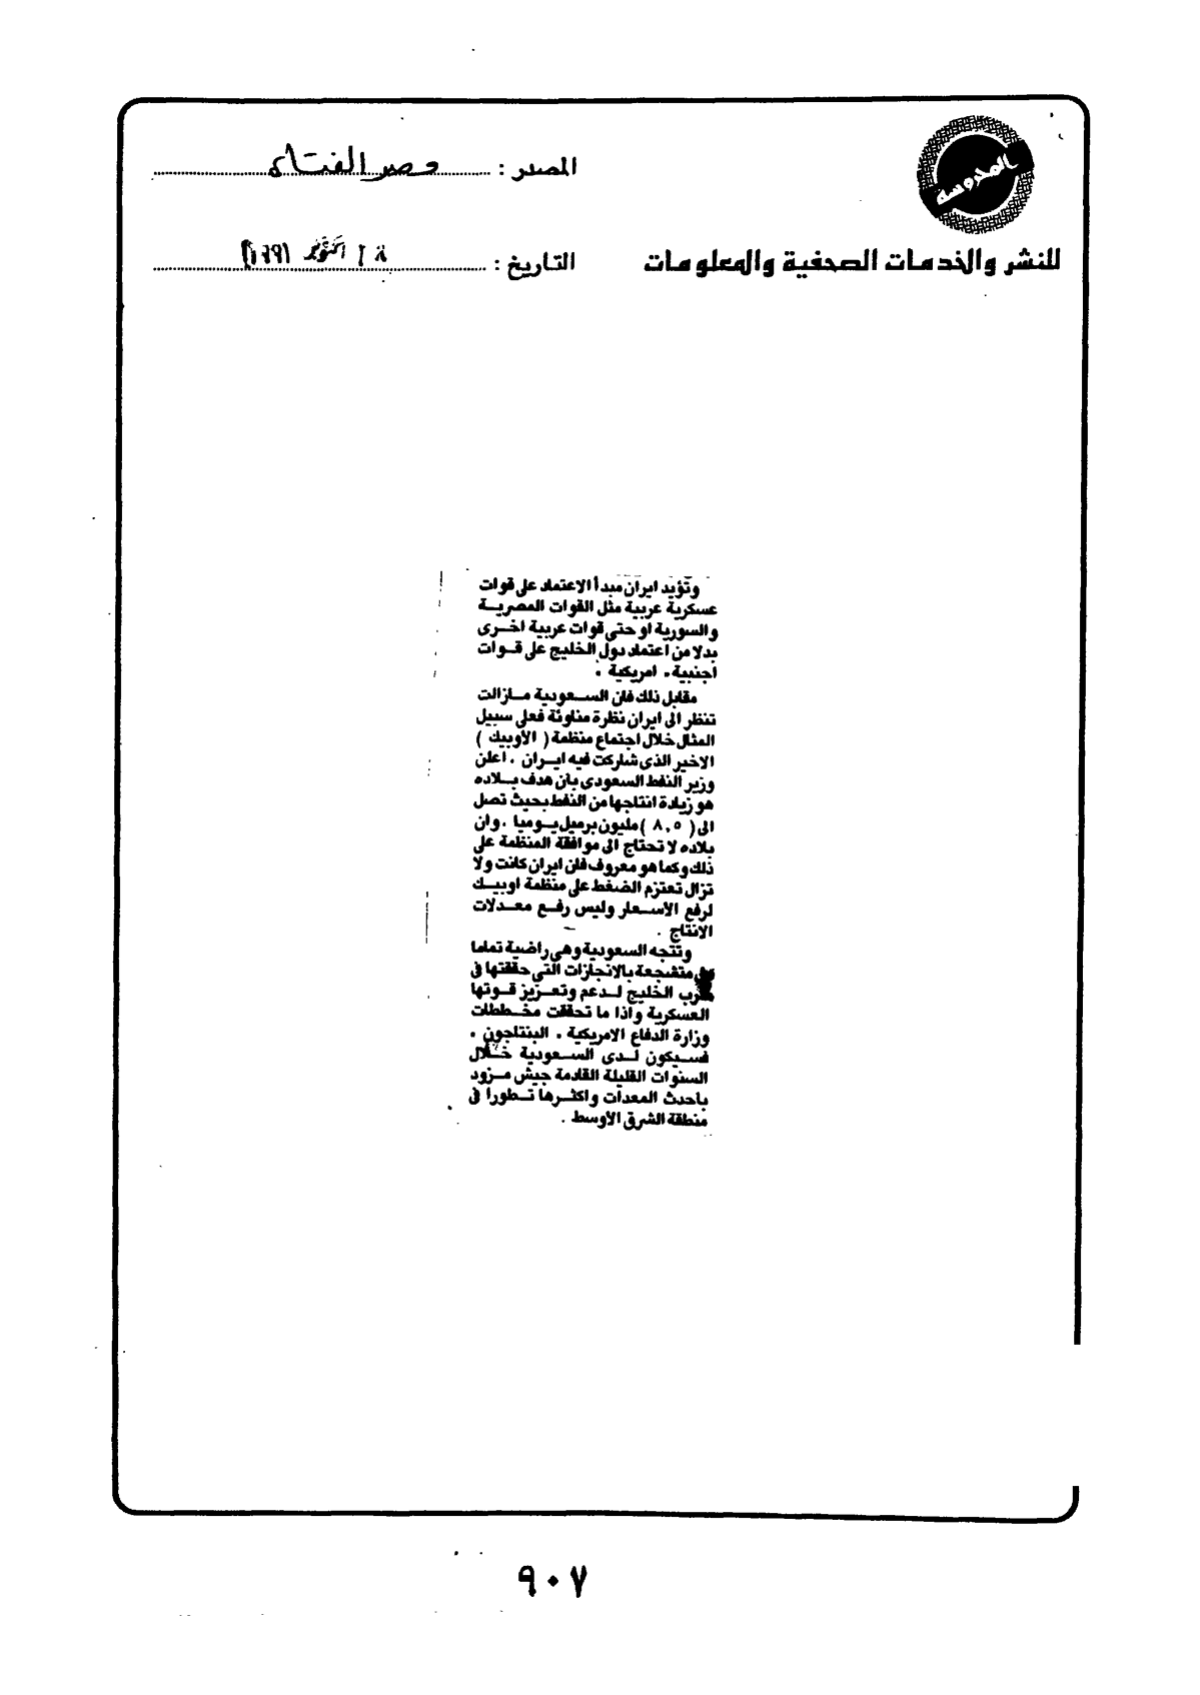 المحروسة
للنشر والخدمات الصحفية والمعلومات
المصدر : مصر الفتاة
التاريخ : أكتوبر ١٩٩١
وتؤيد ايران مبدأ الاعتماد على قوات
عسكرية عربية مثل القوات المصرية
والسورية او حتى قوات عربية اخرى
بدلا من اعتماد دول الخليج على قوات
اجنبية . امريكية .
مقابل ذلك فان السعودية مازالت
تنظر الى ايران نظرة مناوئة فعلى سبيل
المثال خلال اجتماع منظمة ( الأوبيك )
الاخير الذى شاركت فيه ايران . اعلن
وزير النفط السعودى بأن هدف بلاده
هو زيادة انتاجها من النفط بحيث تصل
الى ( ٨,٥ ) مليون برميل يوميا . وان
بلاده لا تحتاج الى موافقة المنظمة على
ذلك وكما هو معروف فان ايران كانت ولا
تزال تعتزم الضغط على منظمة اوبيك
لرفع الاسعار وليس رفع معدلات
الانتاج .
وتتجه السعودية وهى راضية تماما
متشجعة بالانجازات التى حققتها فى
حرب الخليج لدعم وتعزيز قوتها
العسكرية واذا ما تحققت مخططات
وزارة الدفاع الامريكية . البنتاجون .
فسيكون لدى السعودية خلال
السنوات القليلة القادمة جيش مزود
باحدث المعدات واكثرها تطورا فى
منطقة الشرق الاوسط .
٩٠٧